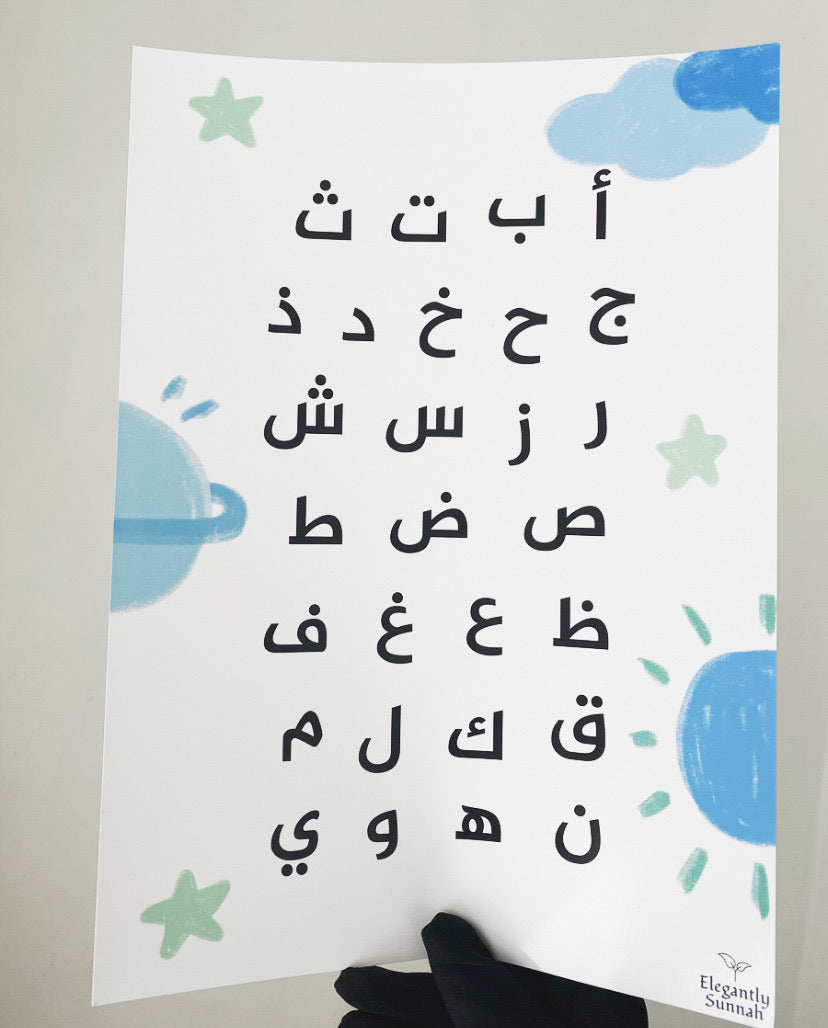 أ ب ت ث
ج ح خ د ذ
ر ز س ش
ص ض ط
ظ ع غ ف
ق ك ل م
ن ه و ي
Elegantly
Sunnah